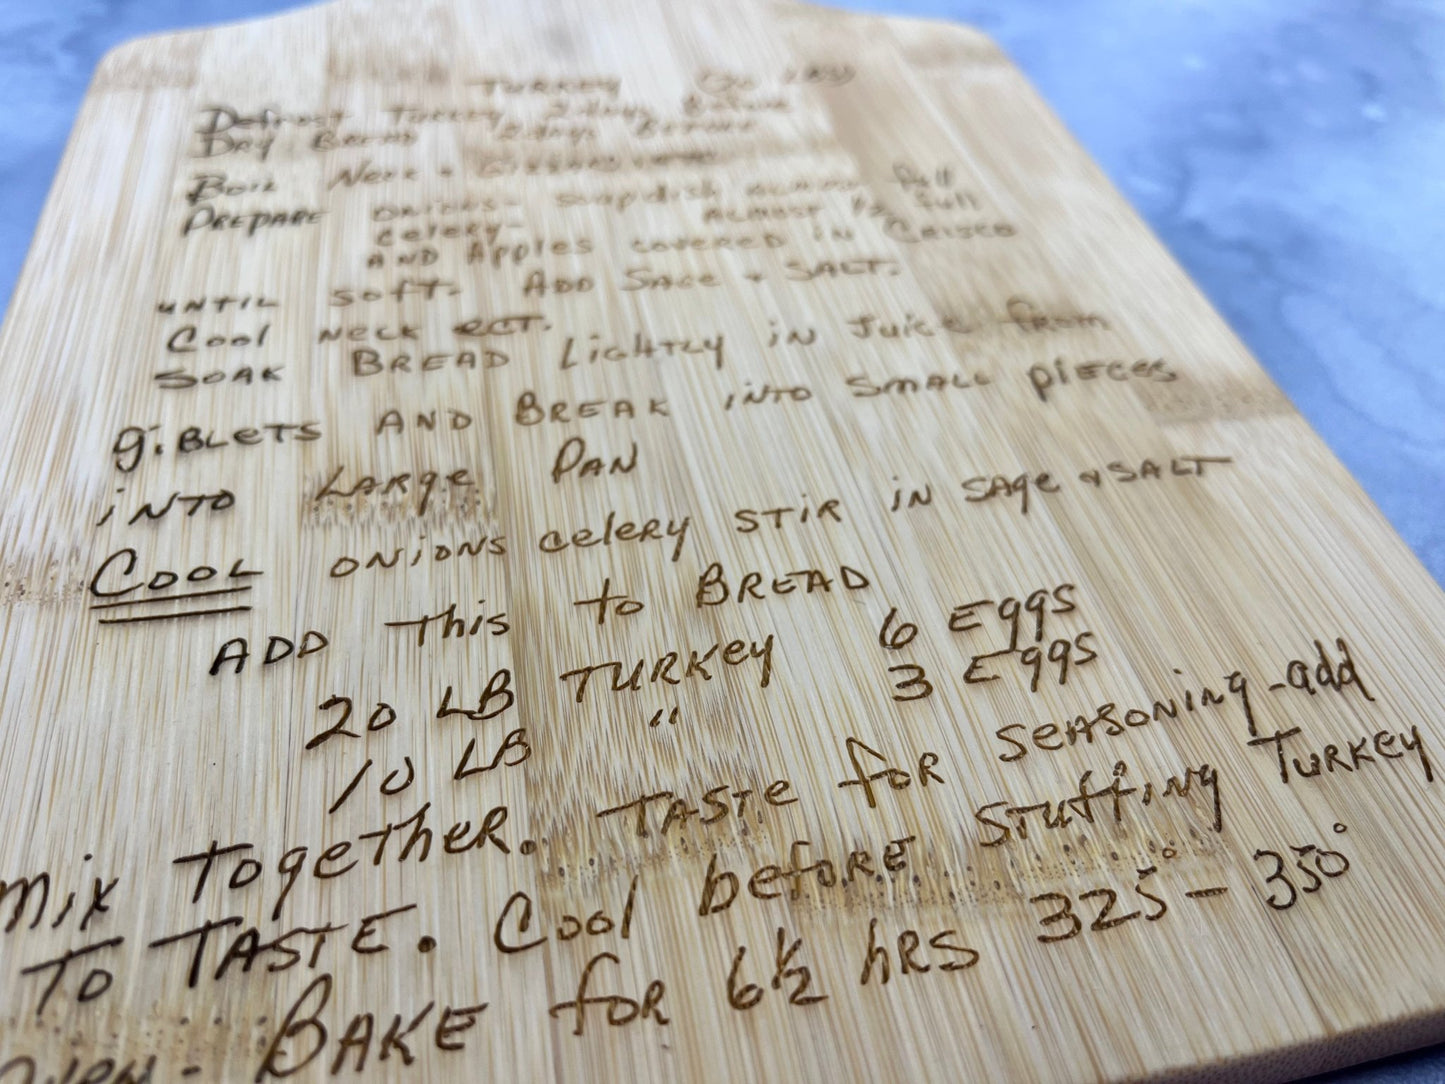 TURKEY (20 LBS)
Defrost Turkey 2 days Before
Dry Bread 2 days Before
Boil Neck + Gizzards
PREPARE ONIONS - soup dish almost full
celery - ALMOST 1/2 full
AND Apples covered in Crisco
UNTIL soft. ADD SAGE + SALT.
Cool NECK ECT.
SOAK BREAD LigHTLY iN Juice from
giBLETS AND BREAK iNTO SMALL piECES
iNTO LARge PAN
COOL ONiONS celery STIR iN SAge + SALT
ADD This to BREAD
20 LB TURKey 6 Eggs
10 LB " 3 Eggs
Mix TogetheR. TASTe foR seASONiNg - add
To TASTE. Cool befoRE STuffiNg TuRKEy
oven. BAKE foR 6½ hRS 325° - 350°